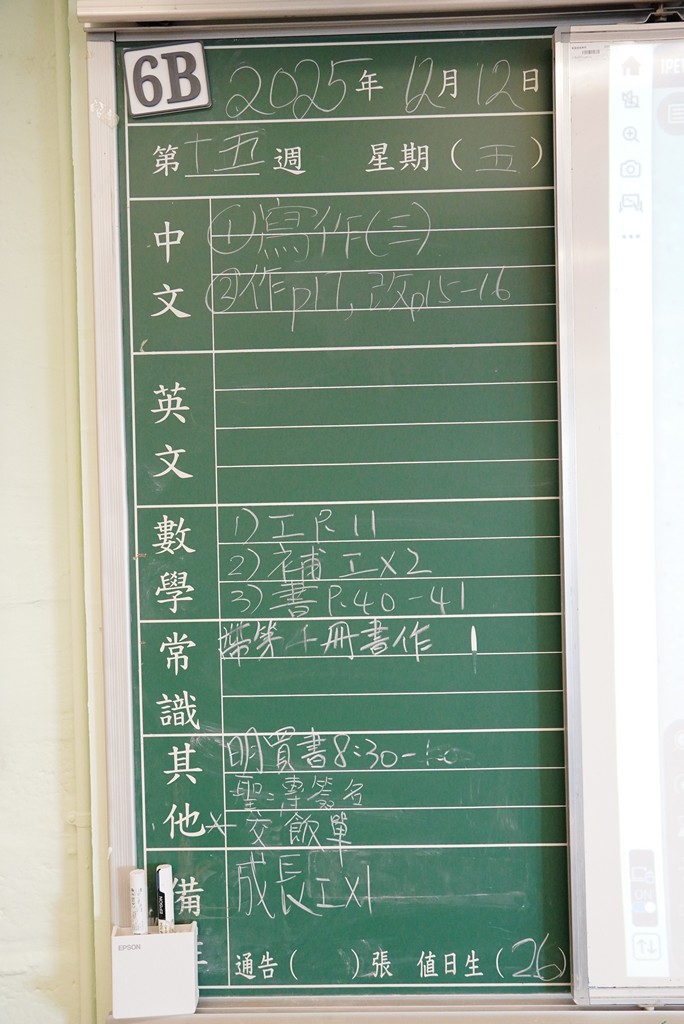 6B
2025年12月12日
第十五週 星期（五）
中文
①寫作(三)
②作p17, 改p15-16
英文
數學
1) 工P.11
2) 補工x2
3) 書P.40-41
常識
帶第 冊書作
其他
明買書8:30-
聖:簿簽名
* 交飯單
備
成長工x1
通告（ ）張 值日生（26）
EPSON
EPSON